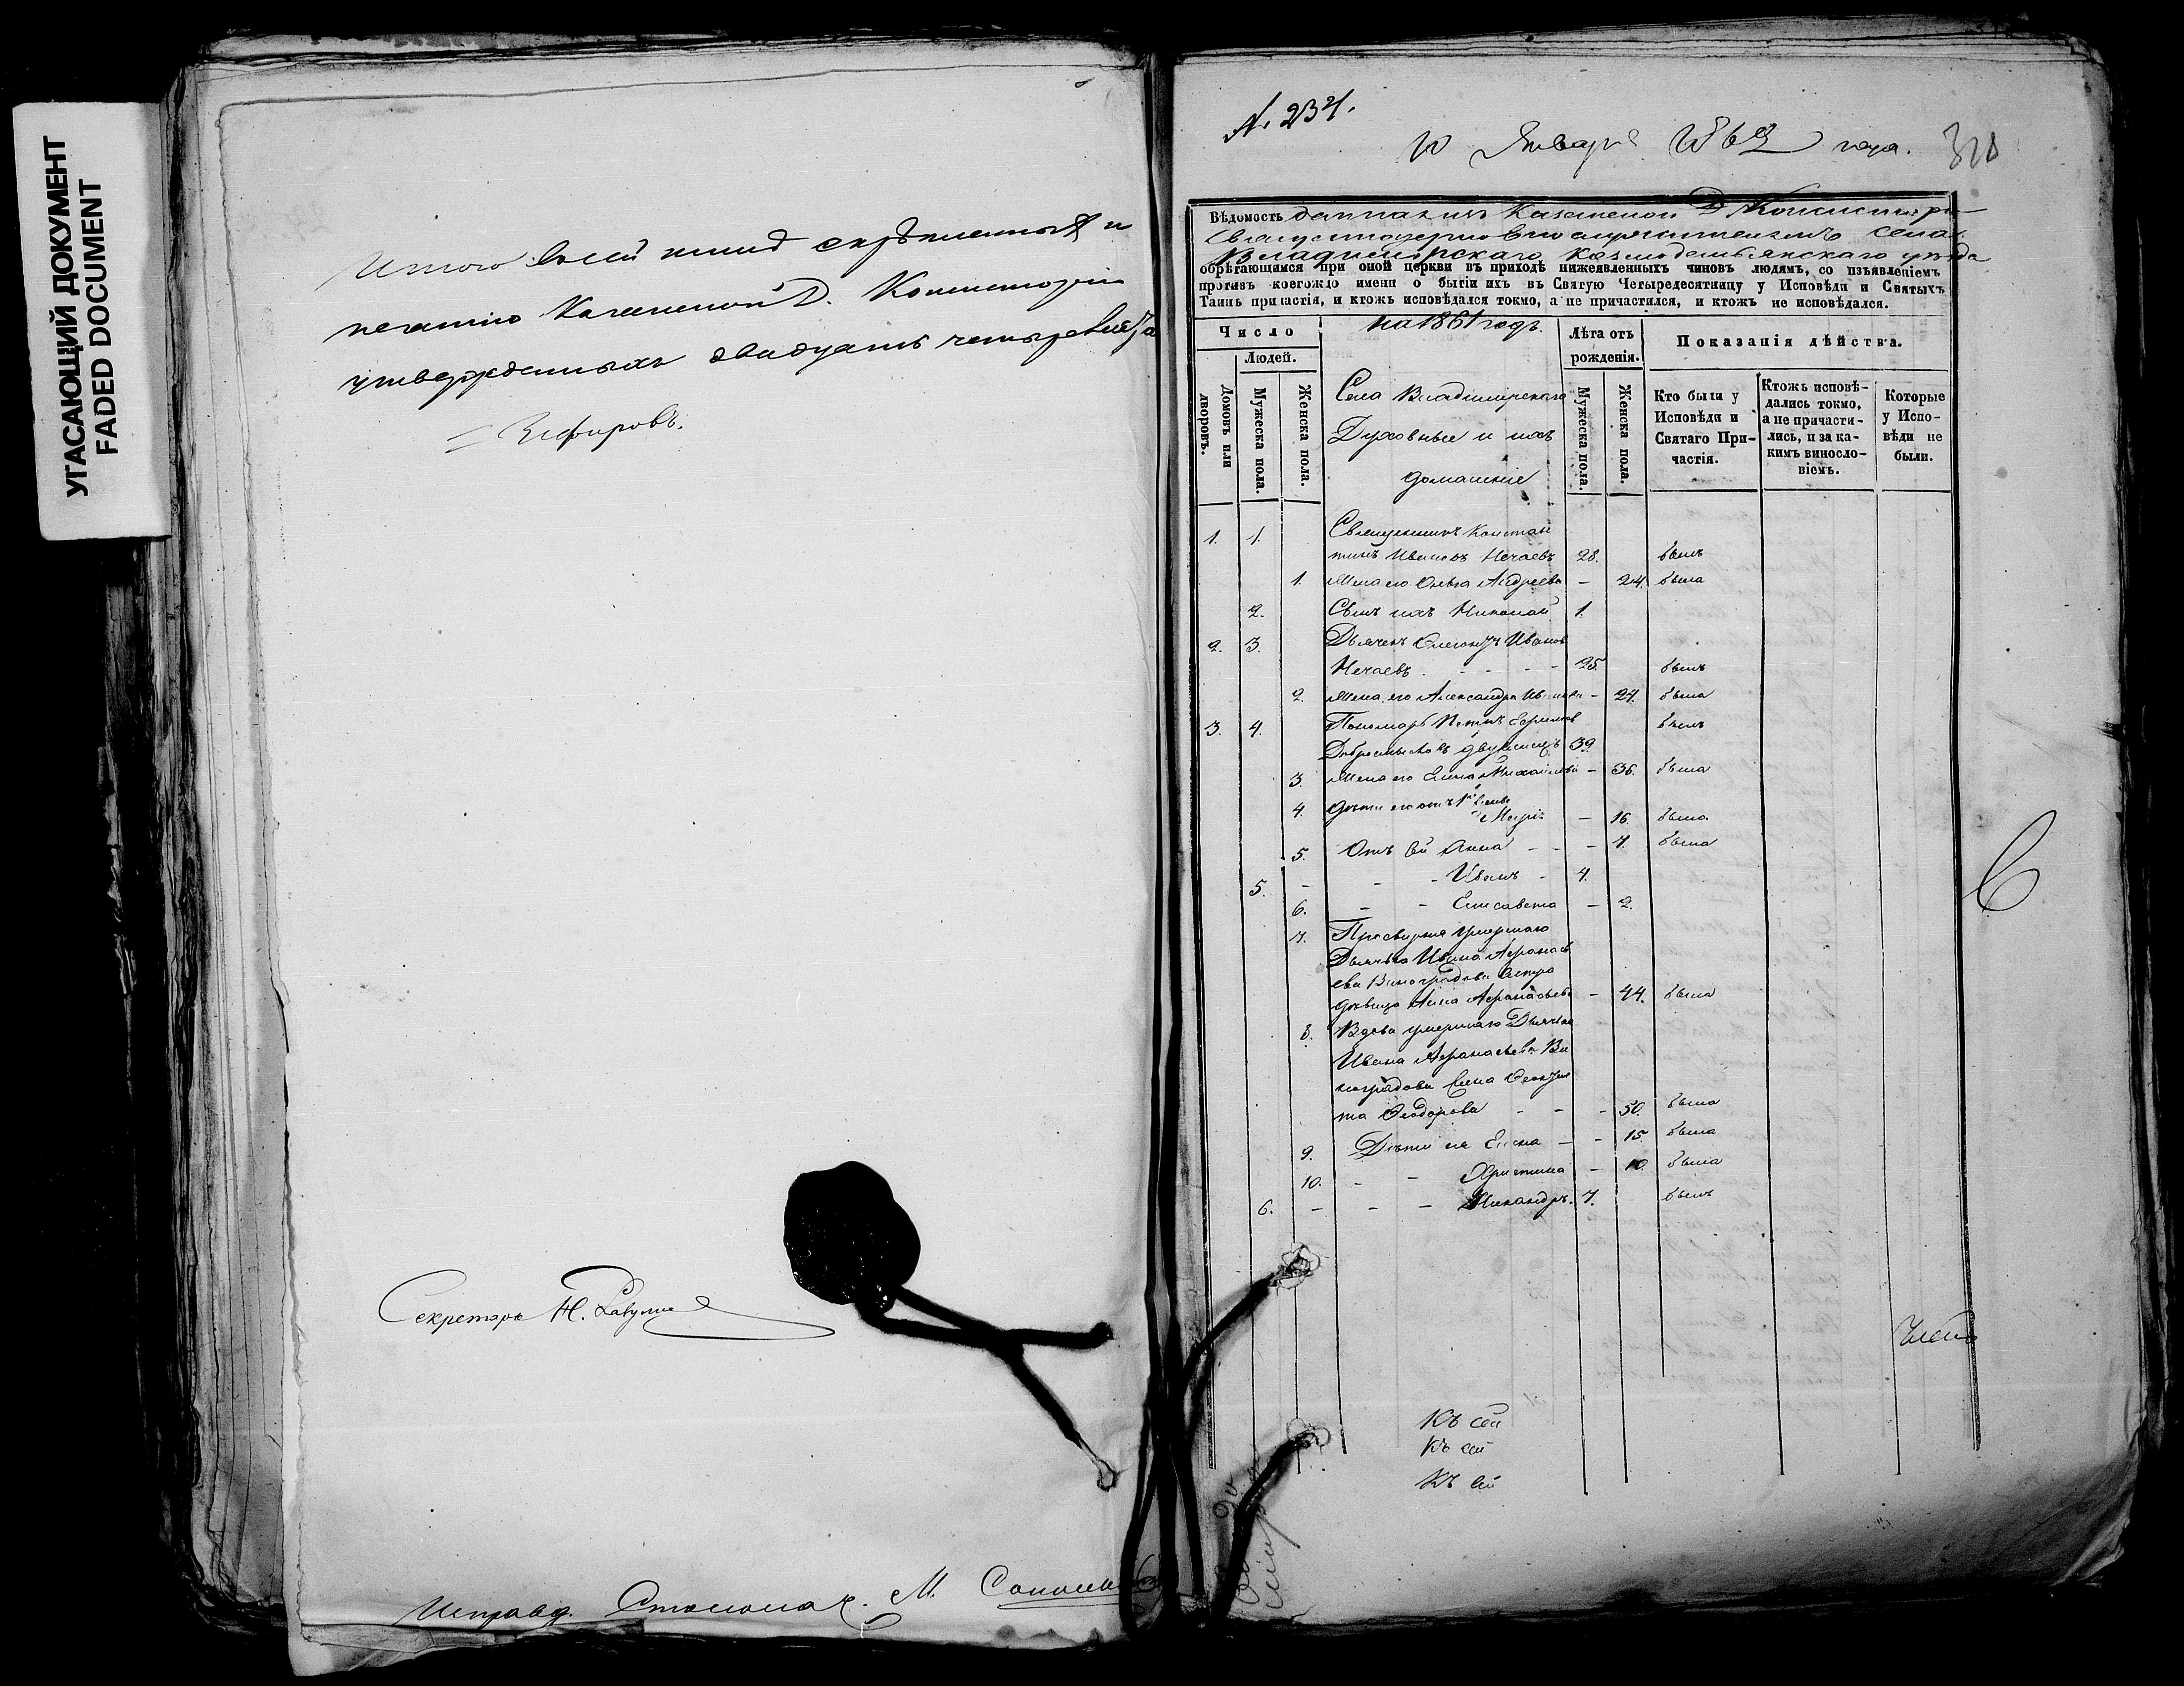 УГАСАЮЩИЙ ДОКУМЕНТ
FADED DOCUMENT
Итого въ сей книгѣ скрѣпленныхъ и
печатью Казанской Д. Консисторіи
утвержденныхъ двадцать четыре
Зефировъ.
Секретарь Н.
Исправ. Столонач. М.
№ 234.
10 Января 1862 года.
310
Вѣдомость данная изъ Казанской Д. Консисторіи
села
Владимірскаго Козмодемьянскаго уѣзда
обрѣтающимся при оной церкви въ приходѣ нижеявленныхъ чиновъ людямъ, со изъявленіемъ
противъ коегождо имени о бытіи ихъ въ Святую Четыредесятницу у Исповѣди и Святыхъ
Таинъ причастія, и ктожъ исповѣдался токмо, а не причастился, и ктожъ не исповѣдался.
Число
Людей.
Домовъ или дворовъ.
Мужеска пола.
Женска пола.
на 1861 годъ.
Села Владимірскаго
Духовные и ихъ
домашніе
Лѣта отъ рожденія.
Мужеска пола.
Женска пола.
Показанія дѣйства.
Кто были у
Исповѣди и
Святаго При-
частія.
Ктожъ исповѣ-
дались токмо,
а не причасти-
лись, и за ка-
кимъ винословіемъ.
Которые
у Испо-
вѣди не
были.
1. 1. Священникъ Констан
тинъ Ивановъ Нечаевъ 28. былъ
1. Жена его Ольга Андреева - 24. была
2. Сынъ ихъ Николай 1.
2. 3. Дьячекъ Ивановъ
Нечаевъ - - - - 25. былъ
2. Жена его Александра Иванова - 24. была
3. 4. Пономарь Петръ Ефимовъ былъ
Добросмысловъ двуженецъ 39.
3. Жена его Елена Михайлова - 36. была
4. Дѣти его отъ 1й жены
Марія - 16. была
5. Отъ сей Анна - - - 7. была
5. - - - Иванъ - 4.
6. - - Елисавета - 2.
7. Просвирня умершаго
Дьячка Ивана Афанась
ева Виноградова сестра
дѣвица Анна Афанасьева - 44. была
8. Вдова умершаго Дьячка
Ивана Афанасьева Ви
ноградова жена
та Ѳеодорова - - - 50. была
9. Дѣти ея Елена - - 15. была
10. - - Христина - 10. была
6. - - - Никандръ. 7. былъ
Къ сей
Къ сей
Къ сей